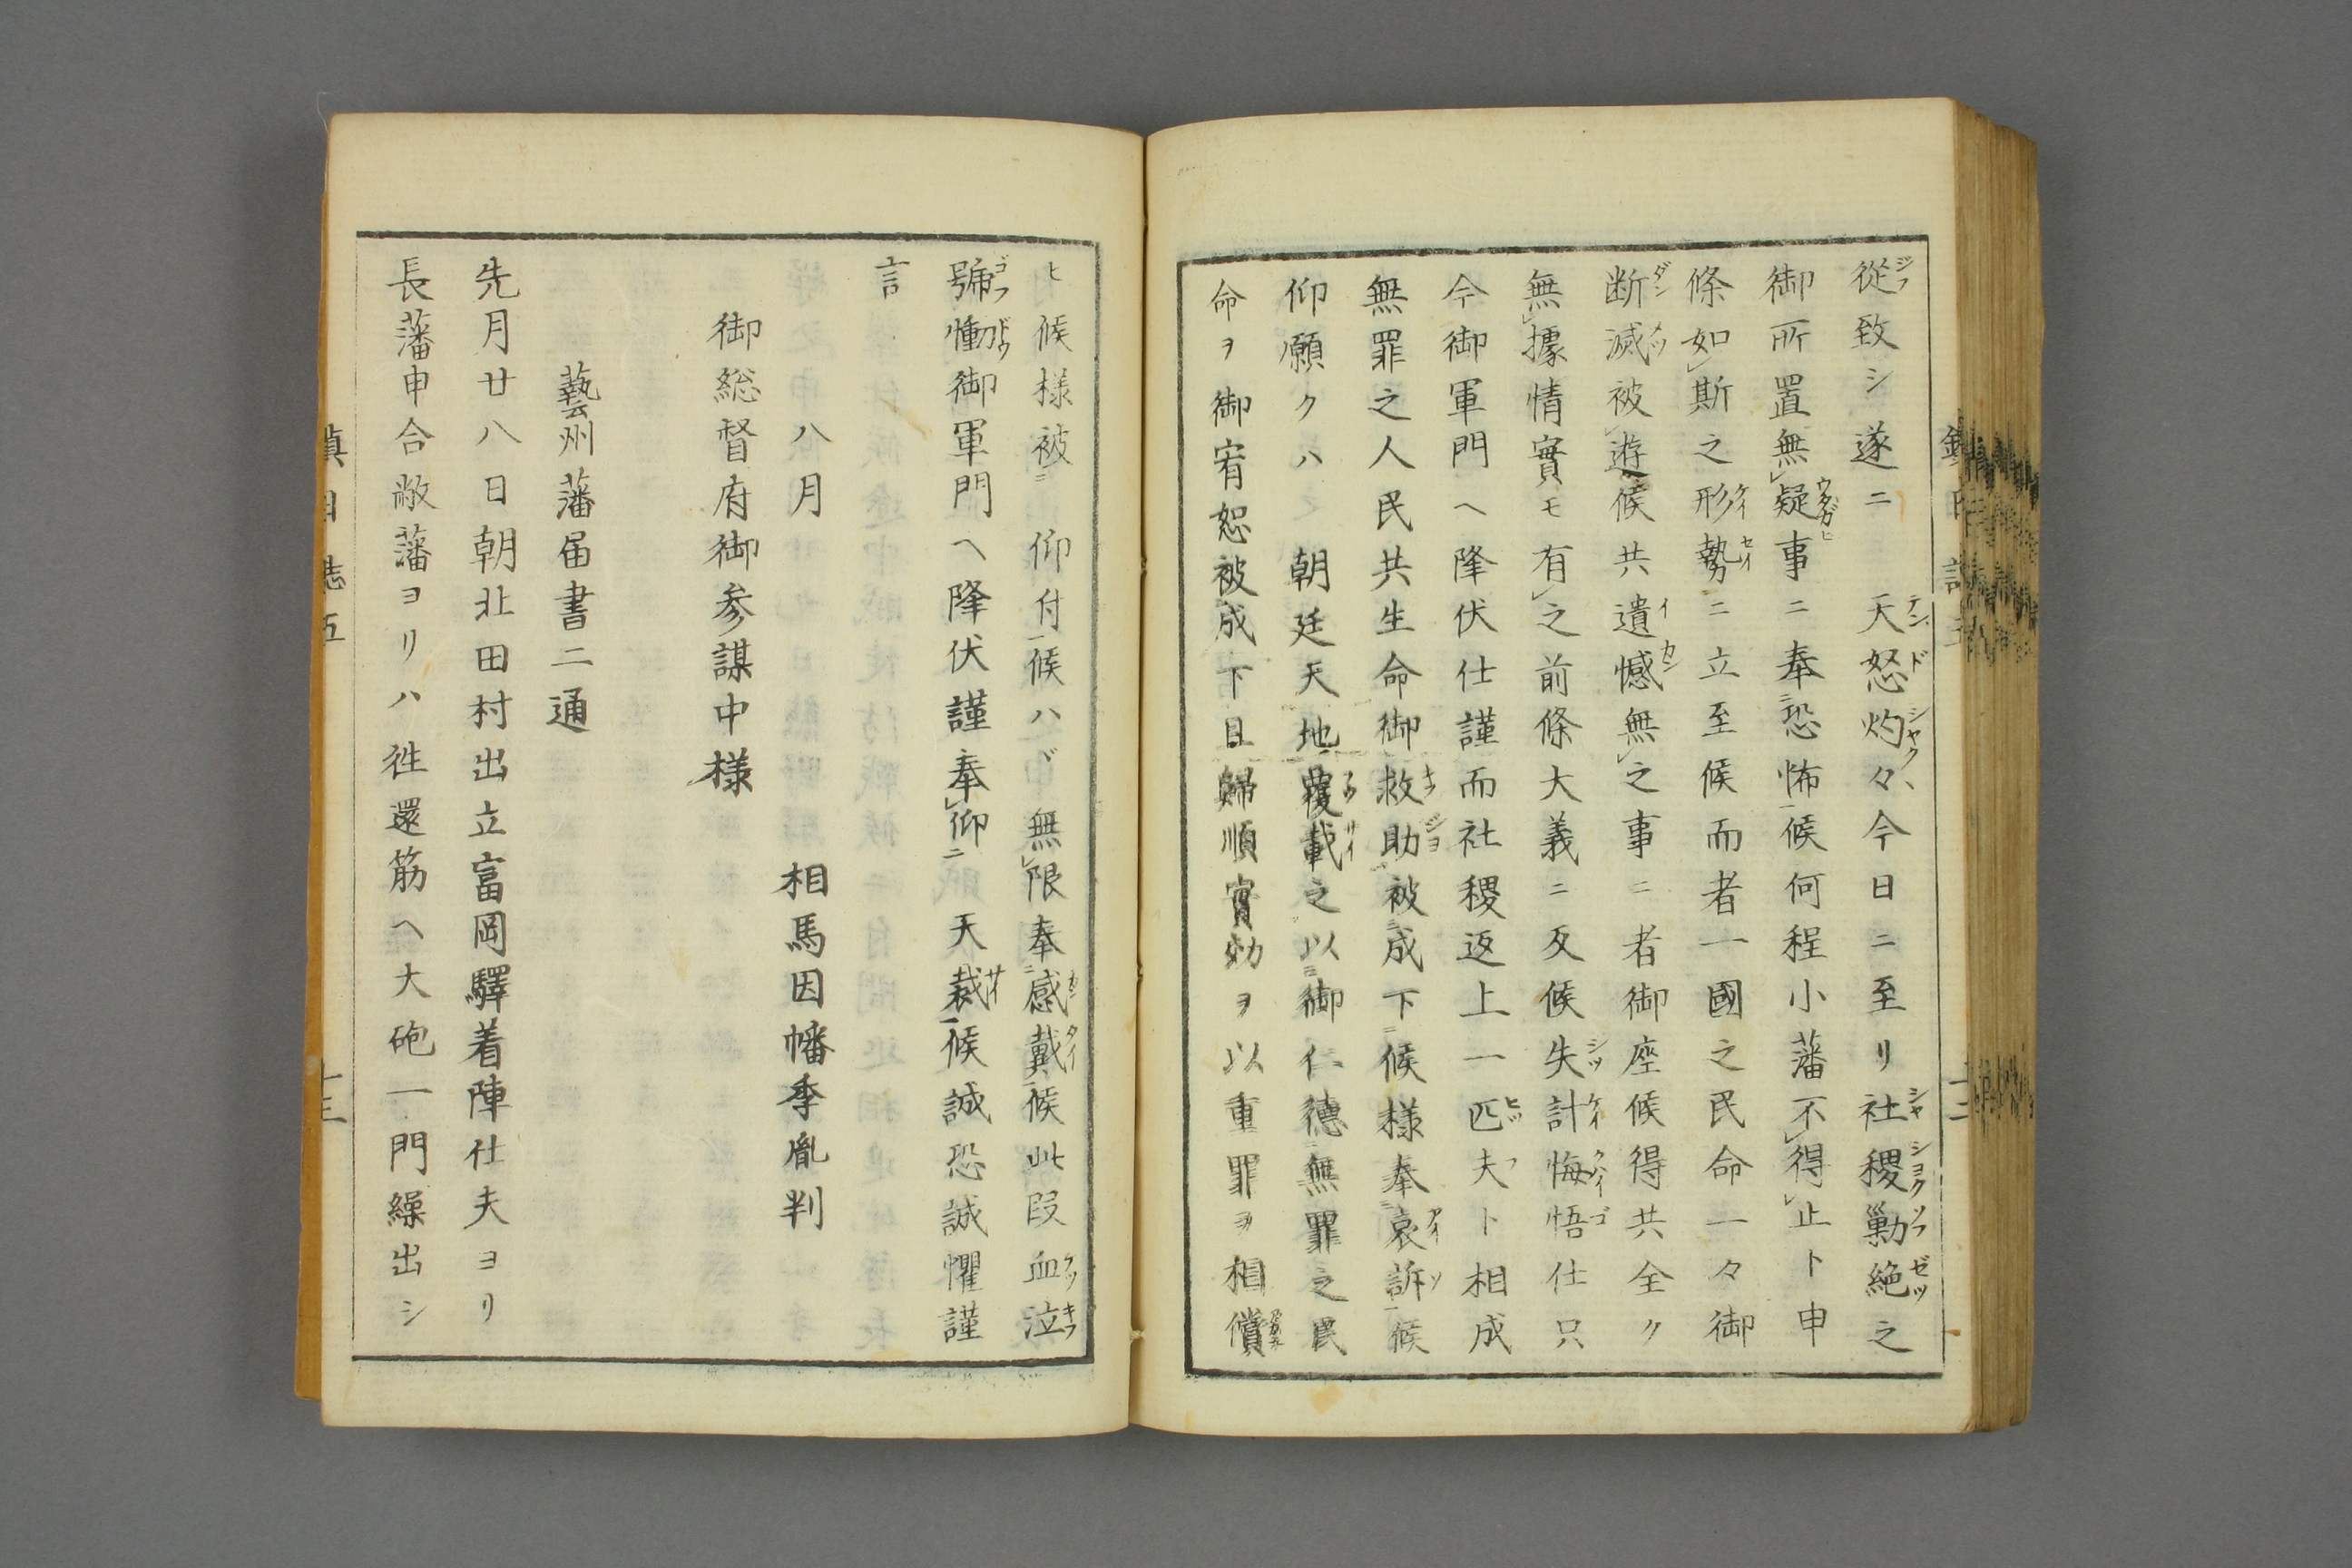 從致シ遂ニ　天怒灼々今日ニ至リ社稷勦絶之
御所置無疑事ニ奉恐怖候何程小藩不得止ト申
條如斯之形勢ニ立至候而者一國之民命一々御
断滅被遊候共遺憾無之事ニ者御座候得共全ク
無據情實モ有之前條大義ニ及候失計悔悟仕只
今御軍門ヘ降伏仕謹而社稷返上一匹夫ト相成
無罪之人民共生命御救助被成下候様奉哀訴候
仰願クハ　朝廷天地覆載之以御仁徳無罪之民
命ヲ御宥恕被成下且歸順實効ヲ以重罪ヲ相償
ヒ候様被　仰付候ハヾ無限奉感戴候此段血泣
號慟御軍門ヘ降伏謹奉仰　天裁候誠恐誠懼謹
言
八月　相馬因幡季胤判
御総督府御参謀中様
藝州藩届書二通
先月廿八日朝北田村出立富岡驛着陣仕夫ヨリ
長藩申合敝藩ヨリハ往還筋ヘ大砲一門繰出シ
鎮日誌五
十三